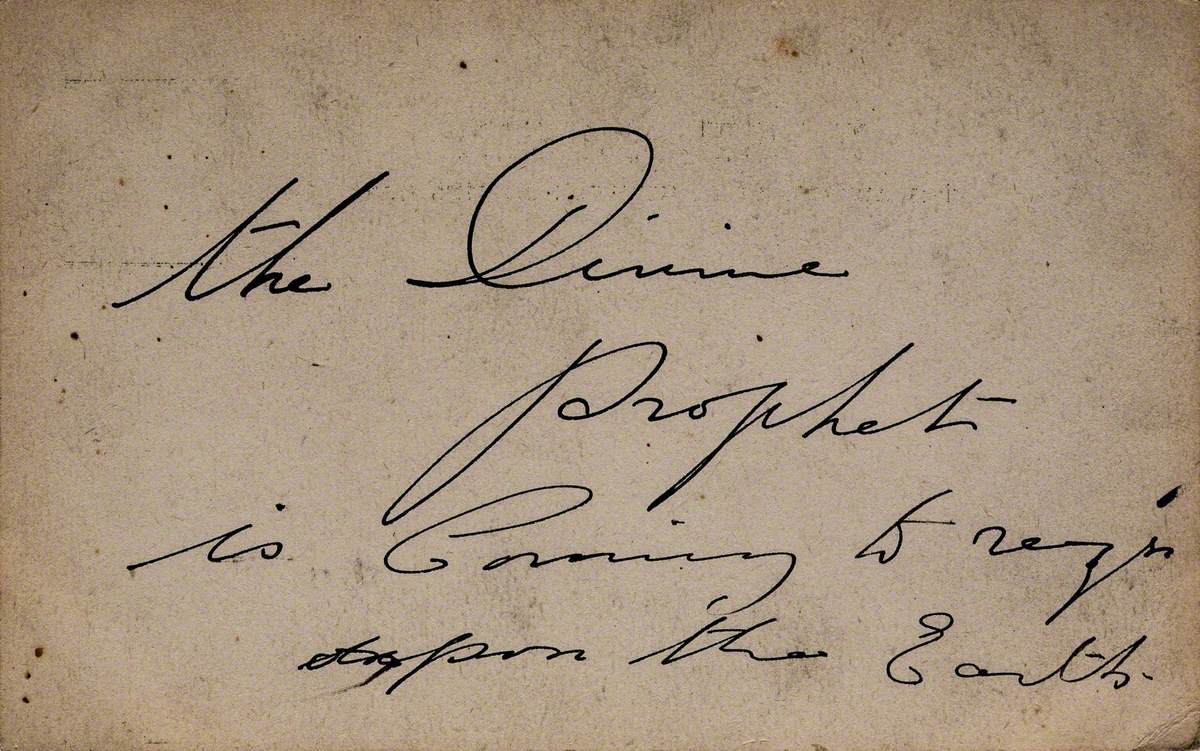 the Divine
Prophet
is Coming to reign
upon the Earth.